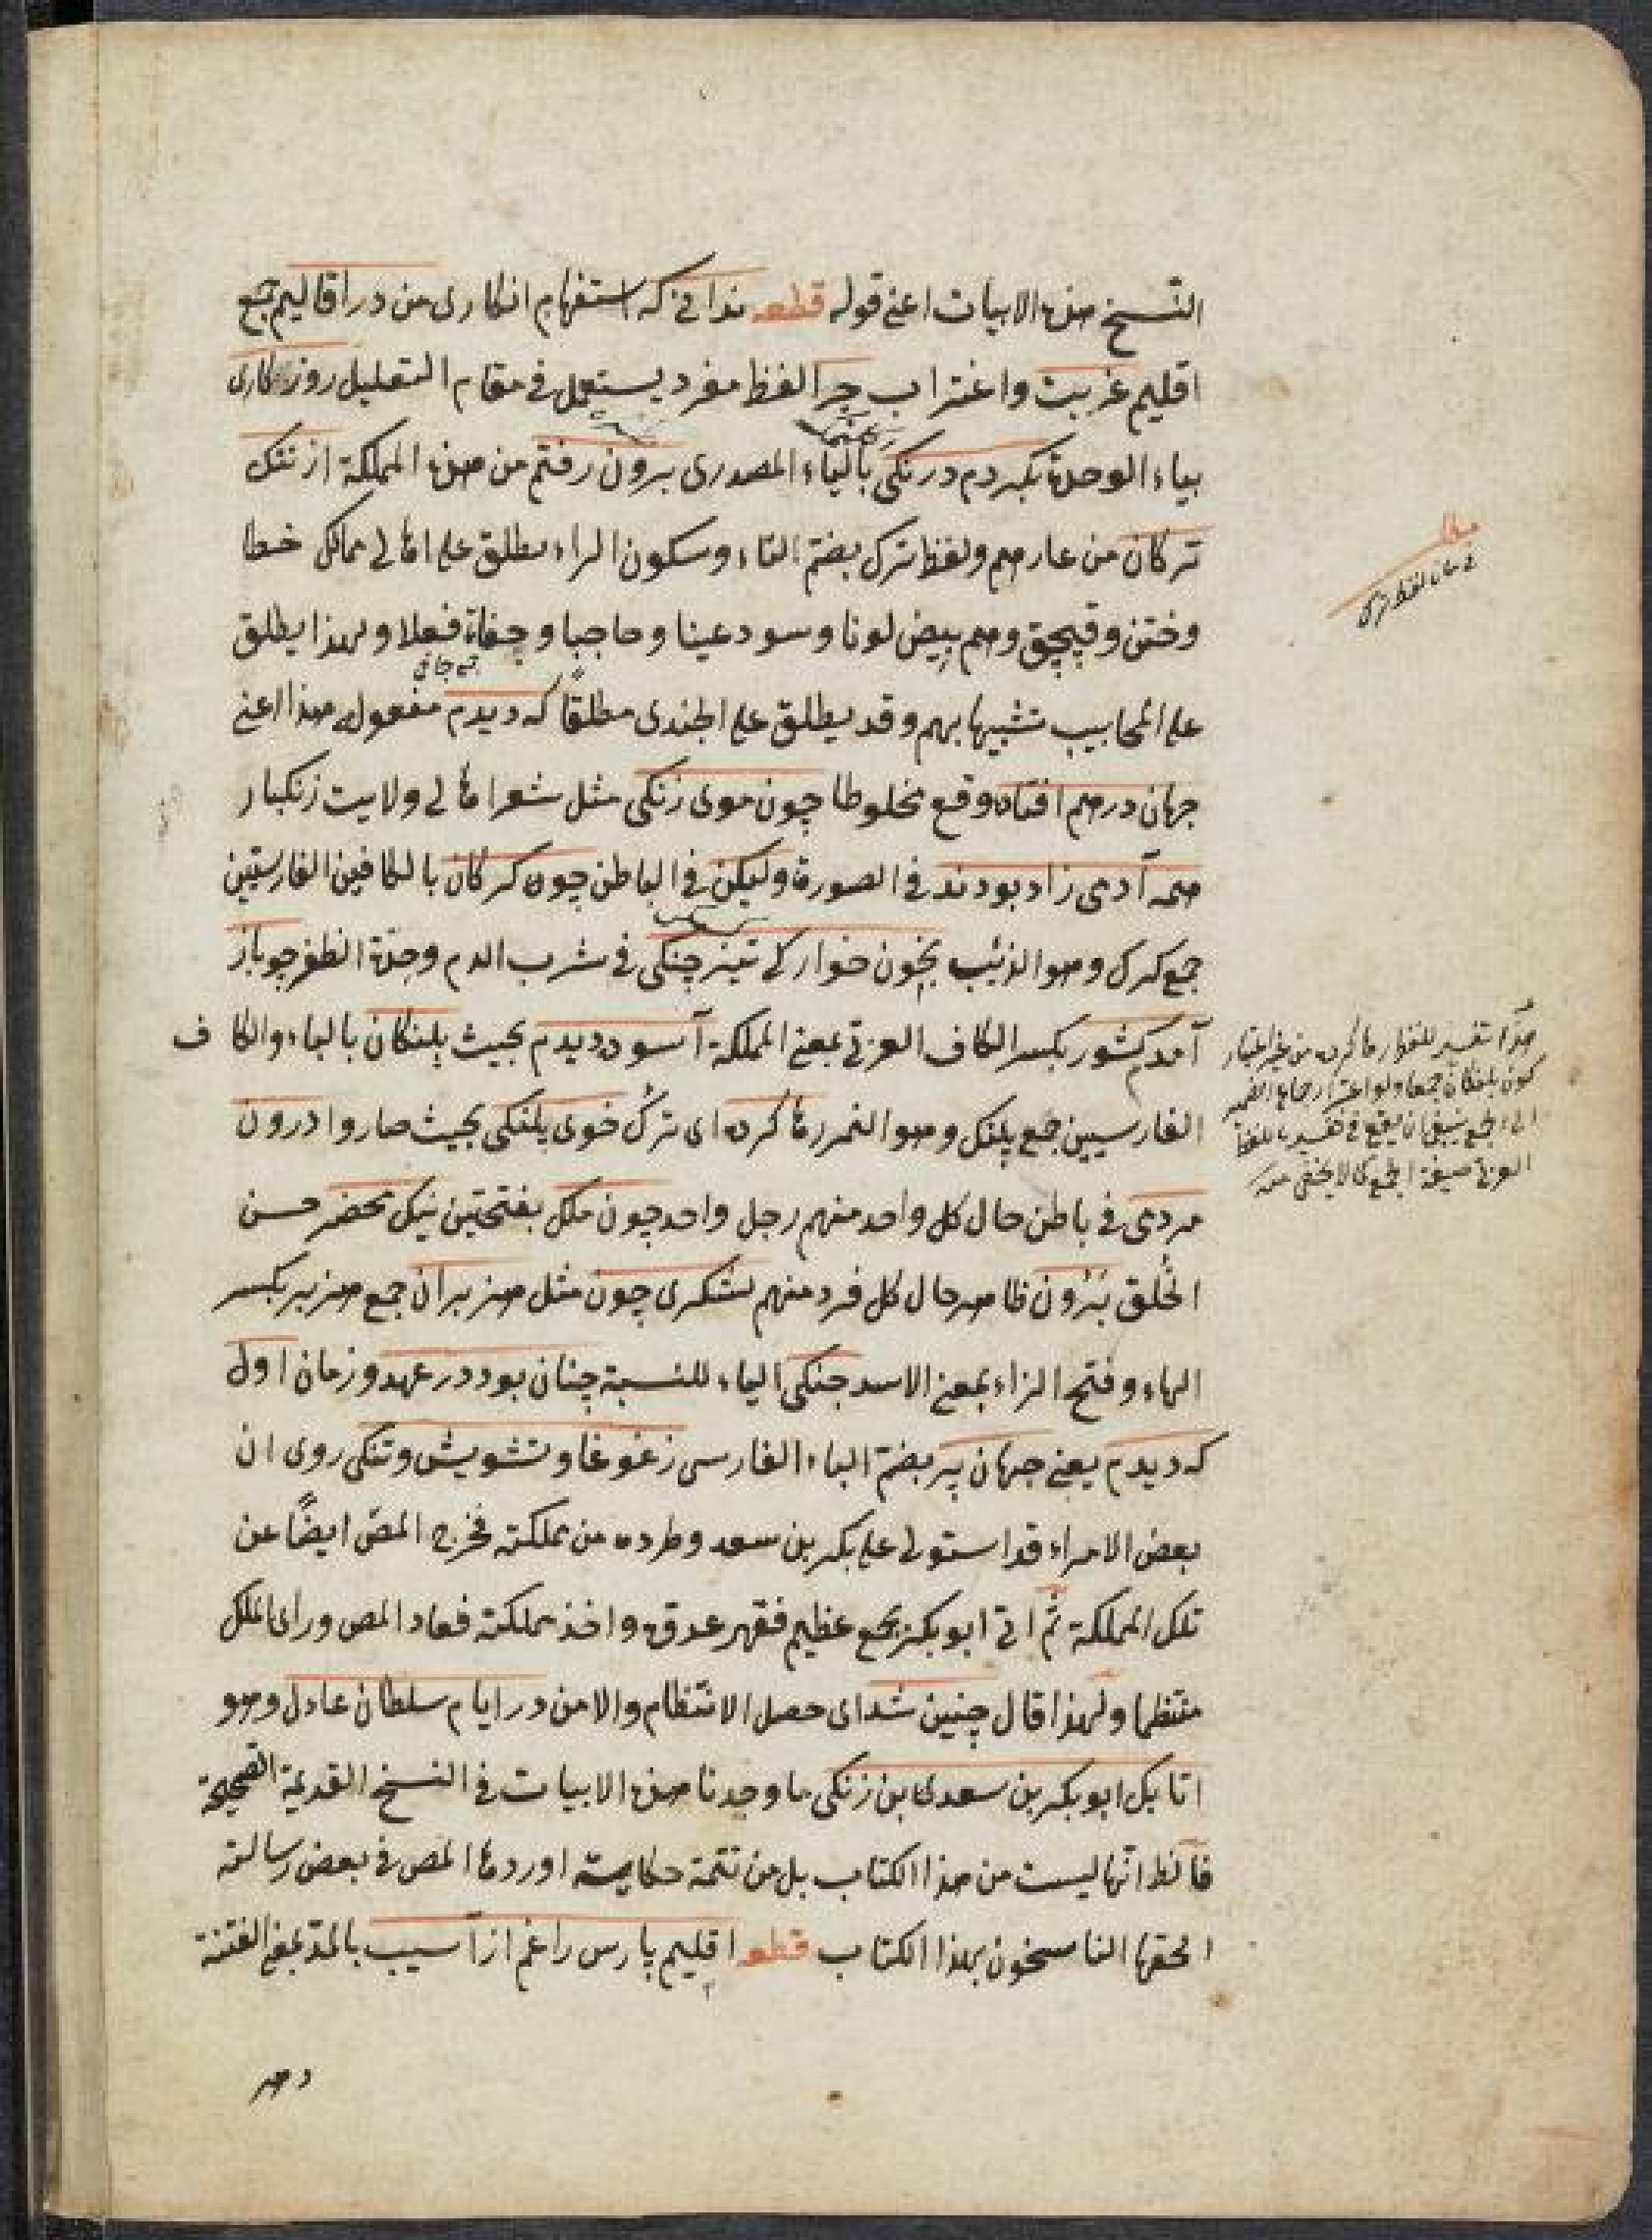 النسخ هذه الابيات اعني قوله قطعه ندانى كه استفهام انكارى من در اقاليم جمع
اقليم غربت واغتراب چرا لفظ مفرد يستعمل فى مقام التعليل روزكارى
بياء الوحدة بكردم درنكى بالياء المصدرى برون رفتم من هذه المملكة از تنك
تركان من عارهم ولفظ ترك بضم التاء وسكون الراء يطلق على اهالى ممالك خطا
وختن وقپچق وهم بيض لونا وسود عينا وحاجبا وجفاة فعلا ولهذا يطلق
على المحابيب تشبيها بهم وقد يطلق على الجندى مطلقًا كه ديدم مفعوله هذا اعنى
جهان درهم افتاده وقع مخلوطا چون موى زنكى مثل شعر اهالى ولايت زنكبار
همه آدمى زاد بودند فى الصورة وليكن فى الباطن چون كركان بالكافين الفارسيّين
جمع كرك وهو الذئب بخون خواركى تيز چنكى فى شرب الدم وحدّة الظفر چو باز
آمدم كشور بكسر الكاف العربى بمعنى المملكة آسوده ديدم بحيث پلنكان بالباء والكاف
الفارسيين جمع پلنك وهو النمر رها كرده اى ترك خوى پلنكى بحيث صاروا درون
مردمى فى باطن حال كل واحد منهم رجل واحد چون ملك بفتحتين نيك محضر حسن
الخُلق بَرُون ظاهر حال كل فرد منهم لشكرى چون مثل هزبران جمع هزبر بكسر
الهاء وفتح الزاء بمعنى الاسد جنكى الياء للنسبة چنان بود در عهد وزمان اول
كه ديدم يعنى جهان پر بضم الباء الفارسى زغوغا وتشويش وتنكى روى ان
بعض الامراء قد استولى على بكر بن سعد وطرده من مملكته فخرج المص ايضًا عن
تلك المملكة ثم اتى ابو بكر بجمع عظيم فقهر عدوه واخذ مملكته فعاد المص وراى الملك
منتظما ولهذا قال چنين شد اى حصل الانتظام والامن در ايام سلطان عادل وهو
اتابك ابو بكر بن سعد بن زنكى ما وجدنا هذه الابيات فى النسخ القديمة الصحيحة
فالظ انّها ليست من هذا الكتاب بل من تتمة حكاية اوردها المص فى بعض رسالته
الحقها الناسخون بهذا الكتاب قطعه اقليم پارس را غم از آسيب بالمدّ بمعنى الفتنة
دهر
مطلب
فى بيان لفظ ترك
هذا تفسير للفظ رها كرده من غير اعتبار
كون پلنكان جمعا ولو اعتبر ارجاع الضمير
الى الجمع ينبغى ان يقع فى تفسيره باللفظ
العربى صيغة الجمع كما لا يخفى منه